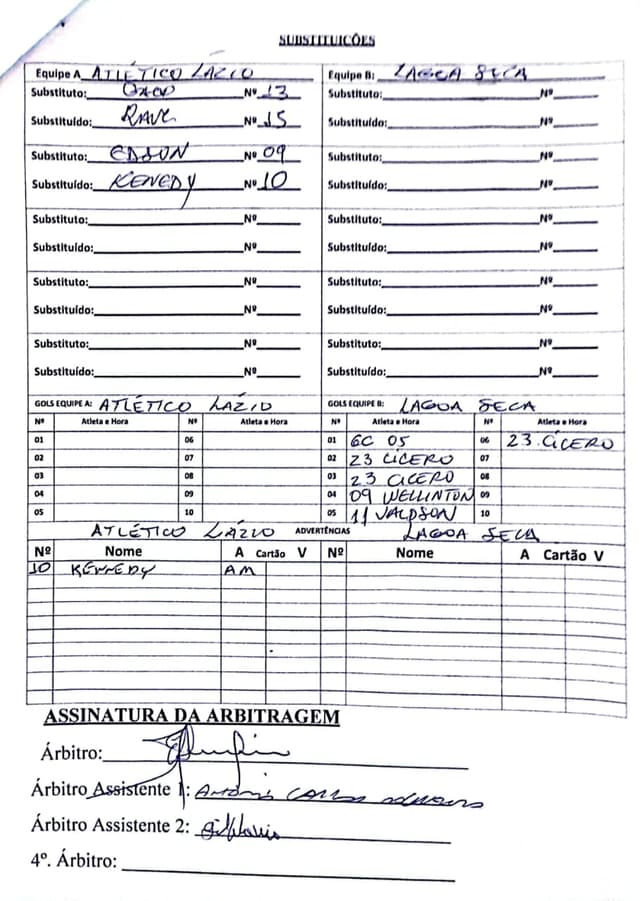 SUBSTITUIÇÕES
Equipe A ATLÉTICO LAZIO Equipe B: LAGOA SECA
Substituto: Nº 13 Substituto: Nº
Substituído: Nº 15 Substituído: Nº
Substituto: EDSON Nº 09 Substituto: Nº
Substituído: KENEDY Nº 10 Substituído: Nº
Substituto: Nº Substituto: Nº
Substituído: Nº Substituído: Nº
Substituto: Nº Substituto: Nº
Substituído: Nº Substituído: Nº
Substituto: Nº Substituto: Nº
Substituído: Nº Substituído: Nº
GOLS EQUIPE A: ATLÉTICO LÁZIO GOLS EQUIPE B: LAGOA SECA
Nº Atleta e Hora Nº Atleta e Hora Nº Atleta e Hora Nº Atleta e Hora
01 06 01 GC 05 06 23 CÍCERO
02 07 02 23 CÍCERO 07
03 08 03 23 CICERO 08
04 09 04 09 WELLINTON 09
05 10 05 11 VALDSON 10
ATLÉTICO LÁZIO ADVERTÊNCIAS LAGOA SECA
Nº Nome A Cartão V Nº Nome A Cartão V
10 KENNEDY AM
ASSINATURA DA ARBITRAGEM
Árbitro:
Árbitro Assistente 1: Antônio Carlos
Árbitro Assistente 2:
4º. Árbitro: